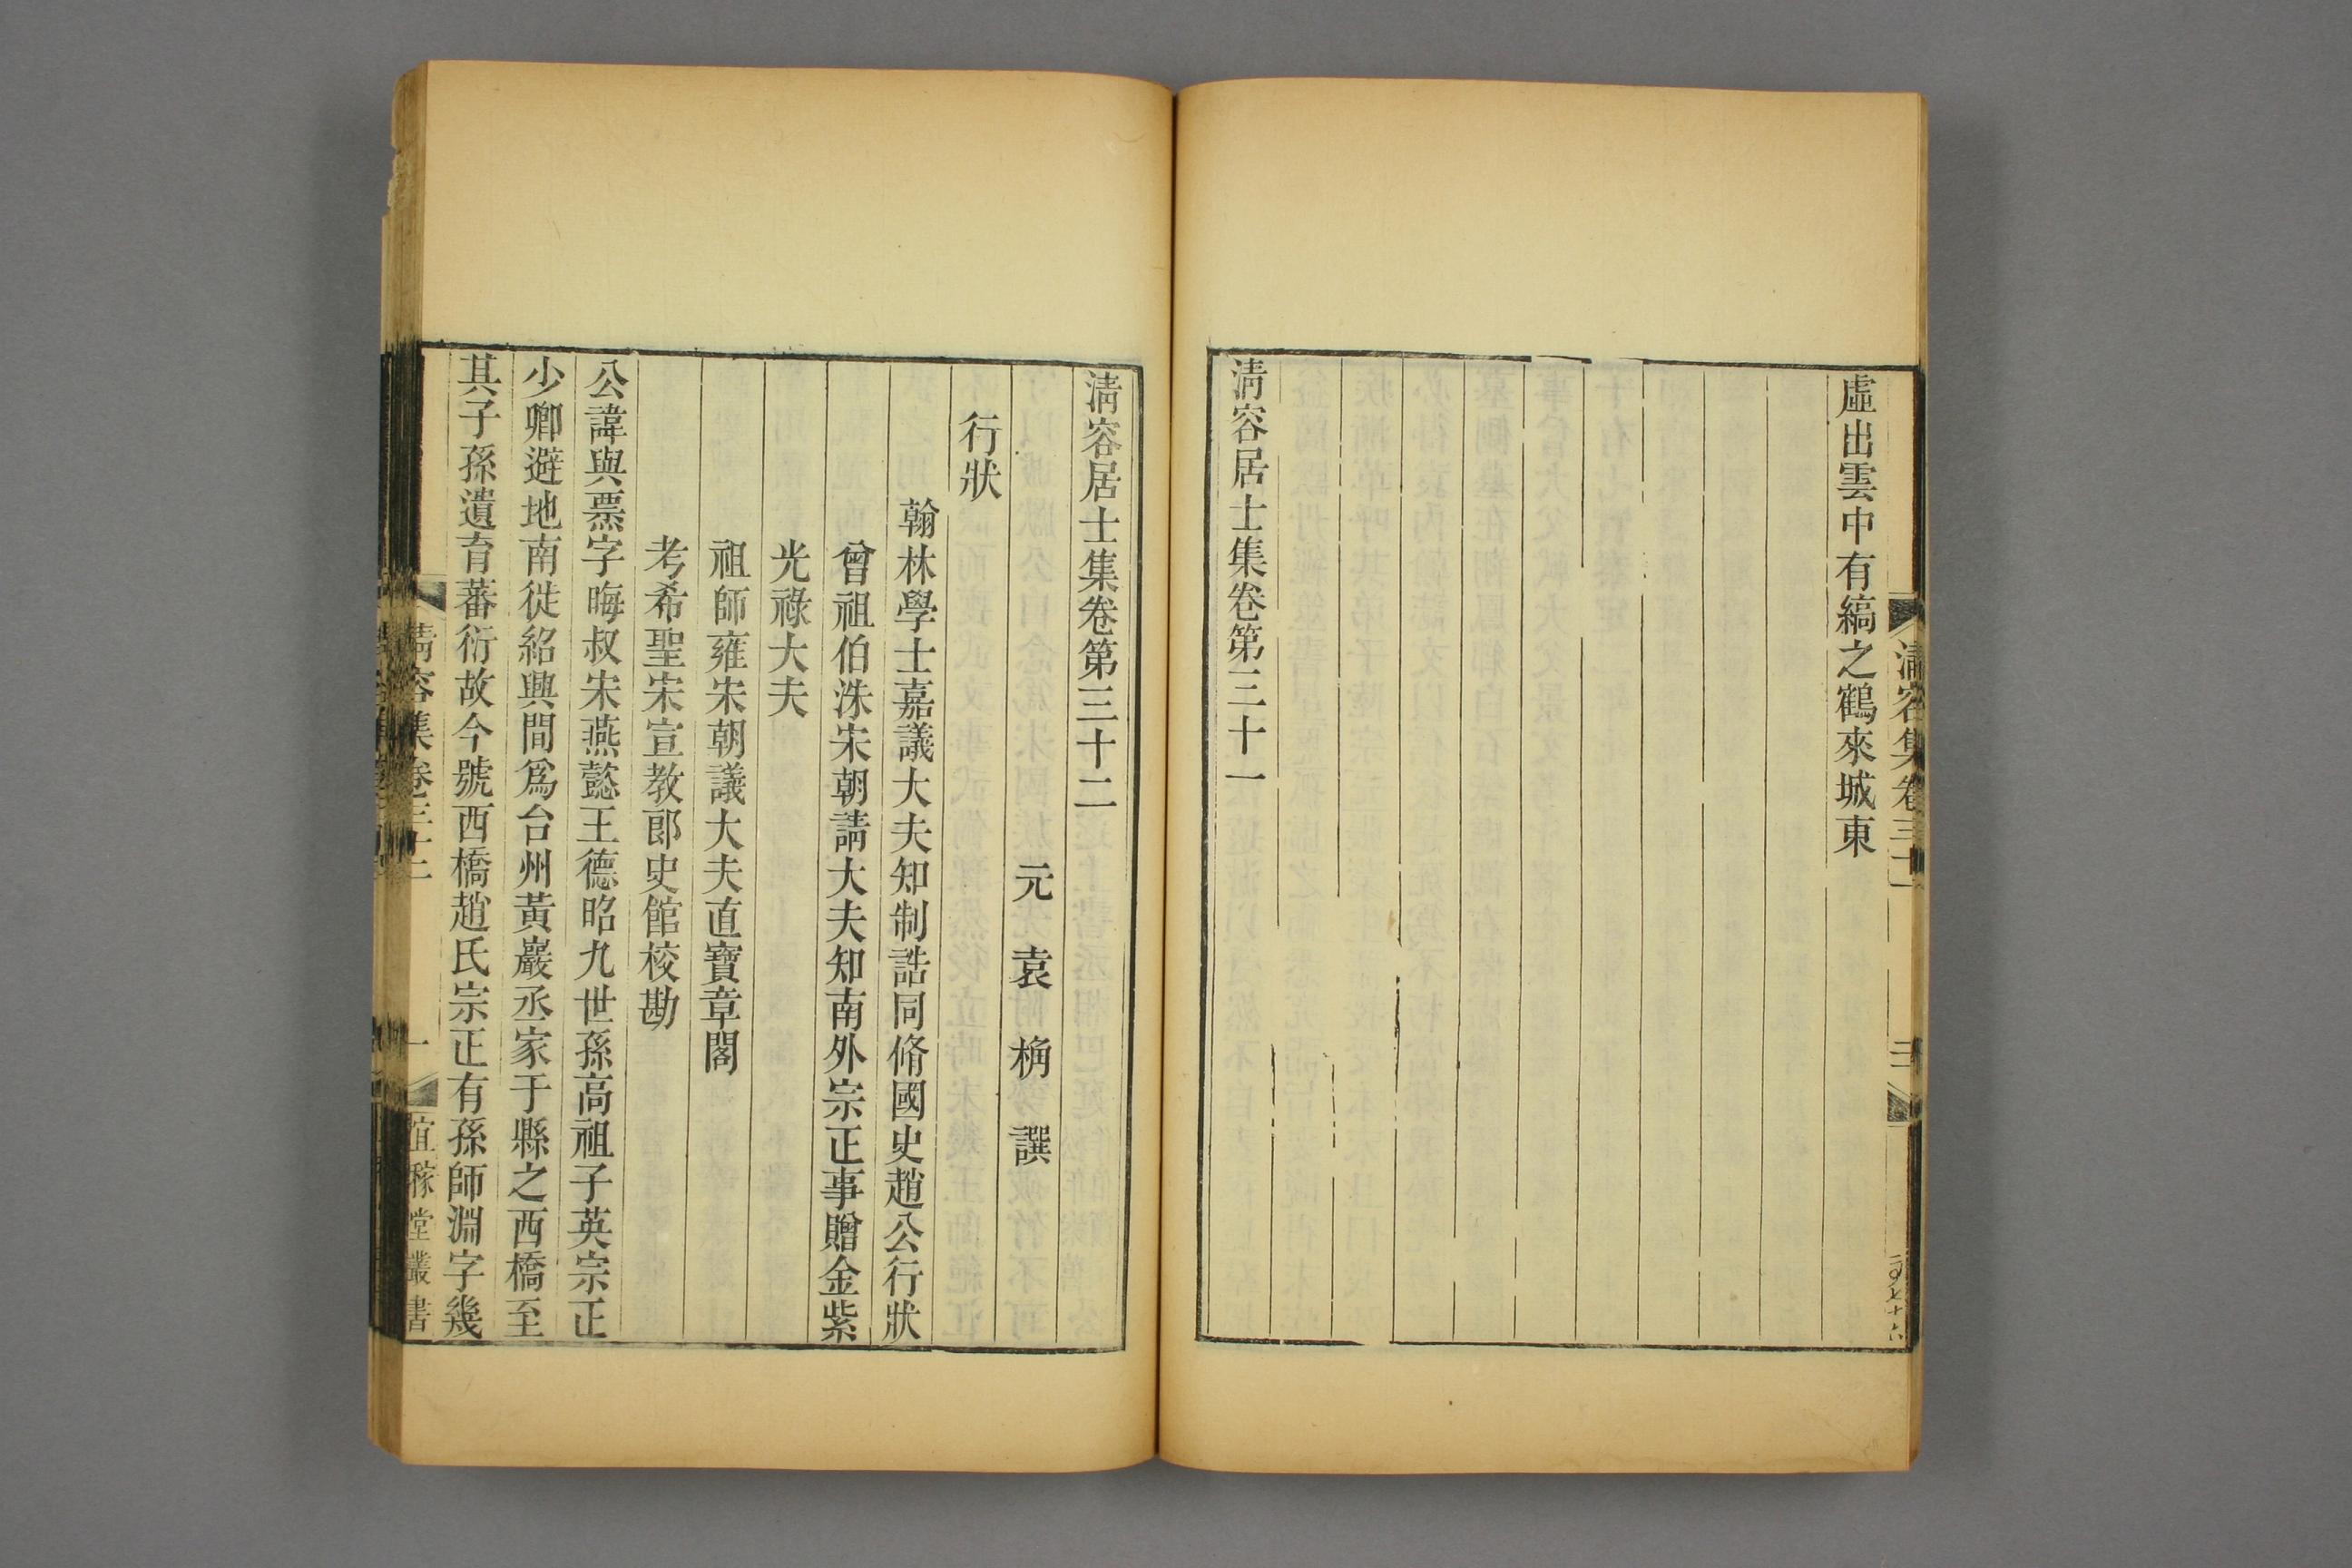 虛出雲中有縞之鶴來城東
清容居士集卷第三十一
清容居士集卷第三十二
元袁桷譔
行狀
翰林學士嘉議大夫知制誥同脩國史趙公行狀
曾祖伯洙宋朝請大夫知南外宗正事贈金紫
光祿大夫
祖師雍宋朝議大夫直寶章閣
考希聖宋宣教郎史館校勘
公諱與票字晦叔宋燕懿王德昭九世孫高祖子英宗正
少卿避地南徙紹興間爲台州黃巖丞家于縣之西橋至
其子孫遺育蕃衍故今號西橋趙氏宗正有孫師淵字幾
清容集卷三十二
一
宜稼堂叢書